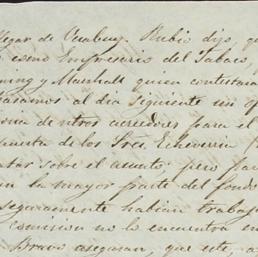 llegar de Veubury. Rubio dijo, q
como Impresario del Tabaco,
ning y Marshall quien contestar
asamos al dia siguiente sin q
de ntros acreedores para el
uenta de los Sres. Echeverria
tar sobre el asunto; pero par
n la mayor parte del fondo
seguramente habian trabaj
comision no lo encuentra en
Bravo aseguran, que este, a